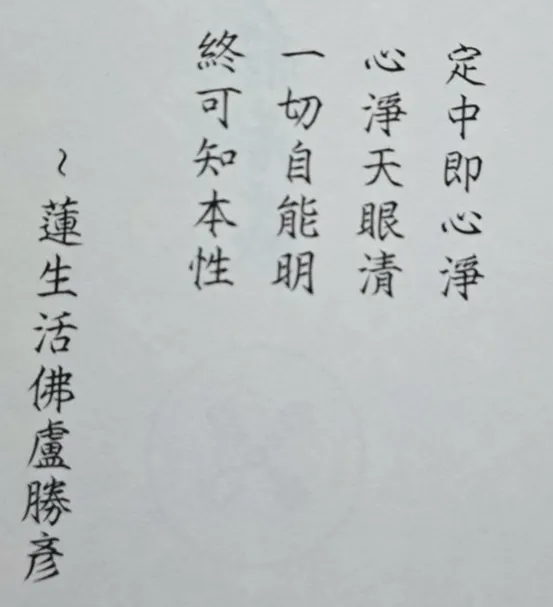 定中即心淨
心淨天眼清
一切自能明
終可知本性
～蓮生活佛盧勝彥